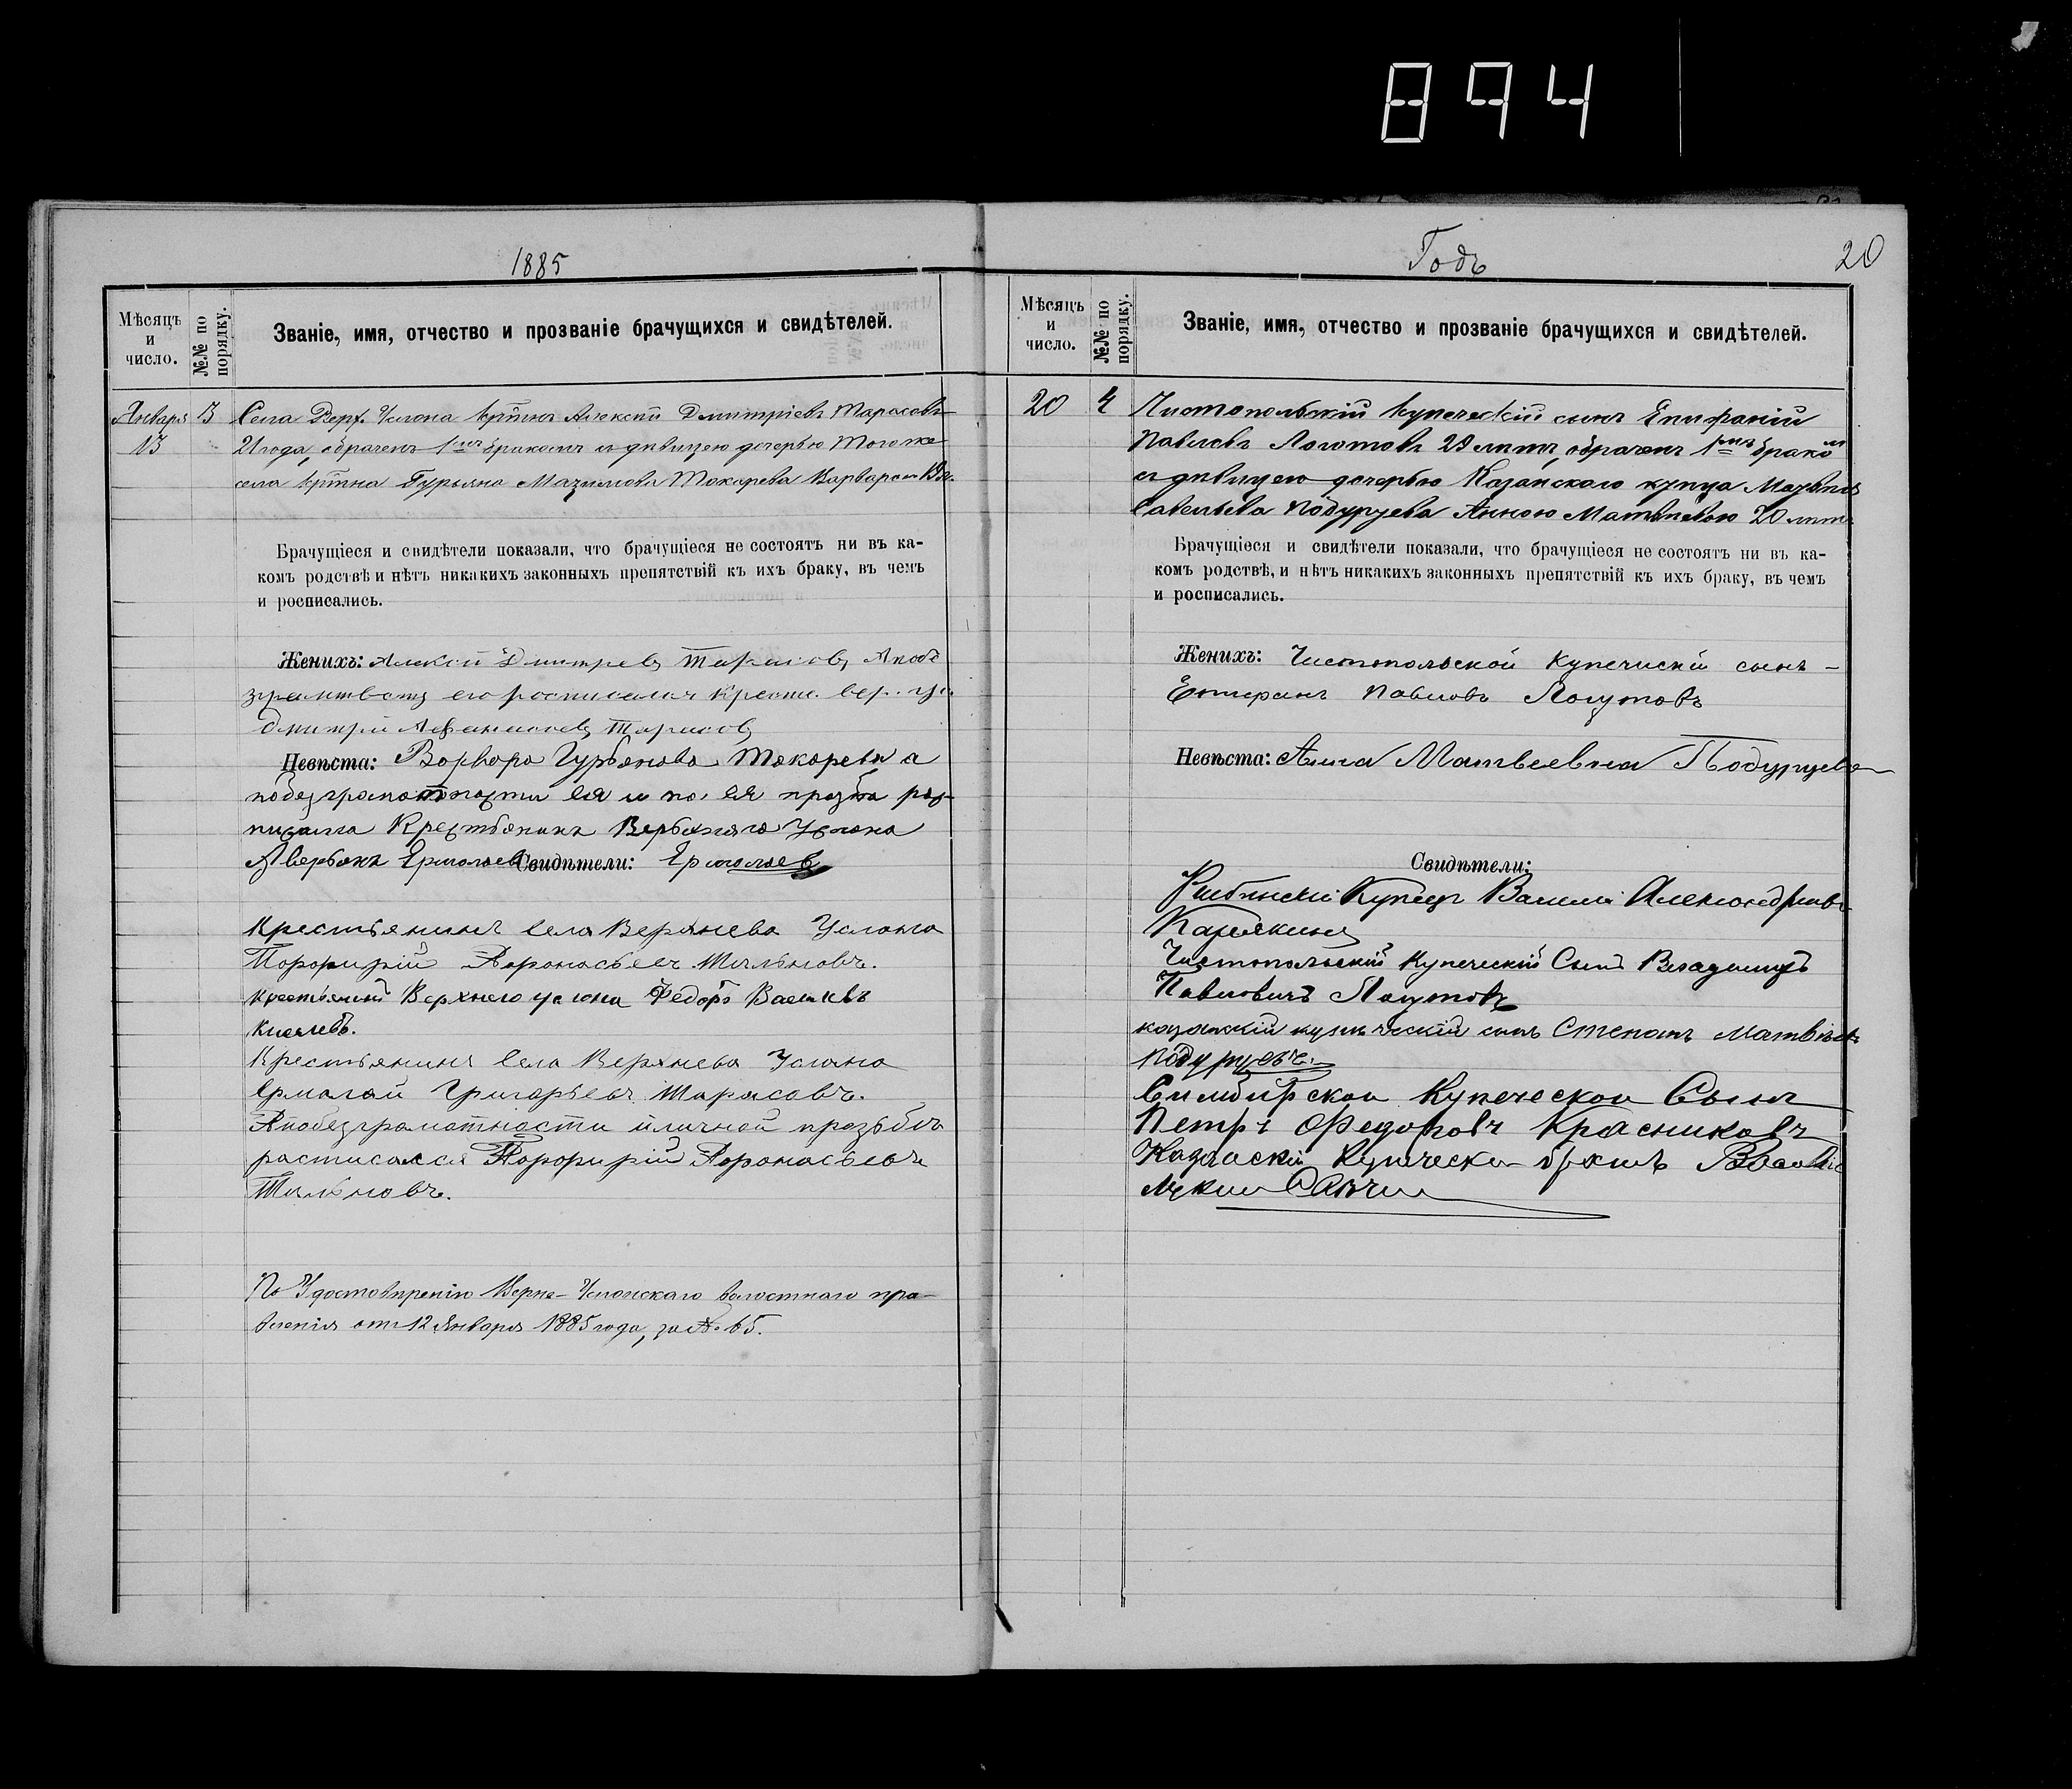 894
1885
Мѣсяцъ и число.
№№ по порядку.
Званіе, имя, отчество и прозваніе брачущихся и свидѣтелей.
Января 13
3
Села Верх. Услона кртнъ Алексѣй Дмитріевъ Тарасовъ
21 года, обраченъ 1мъ бракомъ съ дѣвицею дочерью того же
села кртна Гурьяна Токарева Варварою
Брачущіеся и свидѣтели показали, что брачущіеся не состоятъ ни въ ка-
комъ родствѣ и нѣтъ никакихъ законныхъ препятствій къ ихъ браку, въ чемъ
и росписались.
Женихъ: Алексѣй Дмитрев Тарасов
его росписался
Дмитрй Тарасов
Невѣста: Варвара Гурьянова Токарева а
ея и по ея
Крестьянинъ Услона
Аверьянъ Ермолаев Свидѣтели: Ермолаев
Крестьянинъ села Верхнева Услона
Порфирій Афонасьевъ
крестьянинъ Верхнего услона Федоръ
Крестьянинъ села Верхнева Услона
Ермолай Григорьевъ Тарасовъ.
Апобезграмотности иличной прозьбѣ
расписался Порфирій Афонасьевъ
По Удостовѣренію Верхне-Услонскаго волостнаго пра-
вленія отъ 12 Января 1885 года, за № 65.
Годъ
20
Мѣсяцъ и число.
№№ по порядку.
Званіе, имя, отчество и прозваніе брачущихся и свидѣтелей.
20
4
Чистопольскій купеческій сынъ Епифаній
Павловъ Логутовъ лѣтъ, обраченъ 1мъ бракомъ
съ дѣвицею дочерью Казанскаго купца Матвѣя
Савельева Подуруева Анною Матвѣевою 20 лѣтъ
Брачущіеся и свидѣтели показали, что брачущіеся не состоятъ ни въ ка-
комъ родствѣ, и нѣтъ никакихъ законныхъ препятствій къ ихъ браку, въ чемъ
и росписались.
Женихъ: Чистопольской купечискій сынъ -
Павловъ Логутовъ
Невѣста: Анна Матвеевна Подуруева
Свидѣтели:
Купецъ Василій Александровъ
Чистопольскій Купеческій Сынъ Владимиръ
Павловичъ Логутовъ
казанскій купеческій сынъ Степанъ Матвѣевъ
Подуруевъ.
Симбирской Купеческой Сынъ
Петръ Федоровъ Красниковъ